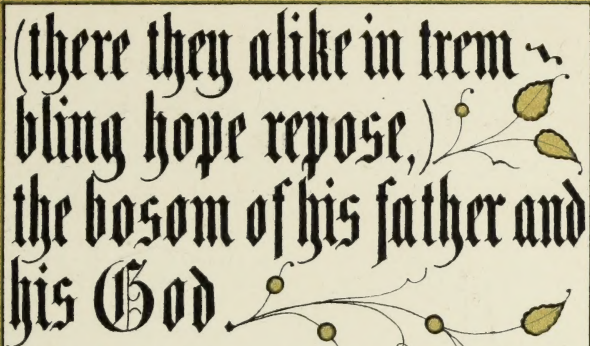 (there they alike in trem~
bling hope repose,)
the bosom of his father and
his God.